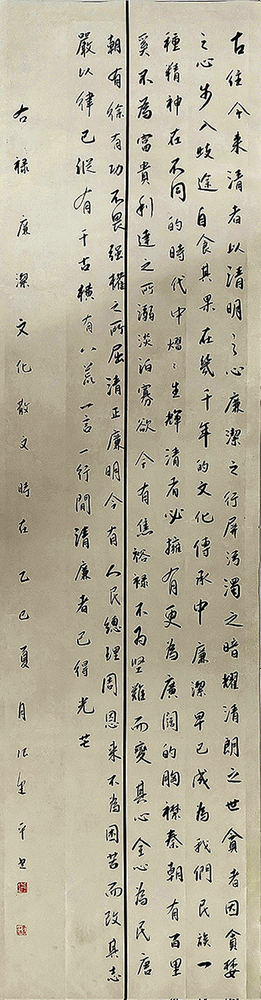 古往今来清者以清明之心廉潔之行屏污濁之暗耀清朗之世貪者因貪婪
之心步入歧途自食其果在幾千年的文化傳承中廉潔早已成為我們民族一
種精神在不同的時代中熠々生輝清者必擁有更為廣闊的胸襟秦朝有百里
奚不為富貴利達之所溺淡泊寡欲今有焦裕禄不為坚難而變其心全心為民唐
朝有徐有功不畏强權之所屈清正廉明今有人民總理周恩来不為困苦而改其志
嚴以律己縱有千古横有八荒一言一行間清廉者已得光芒
右禄廉潔文化散文時在乙巳夏月